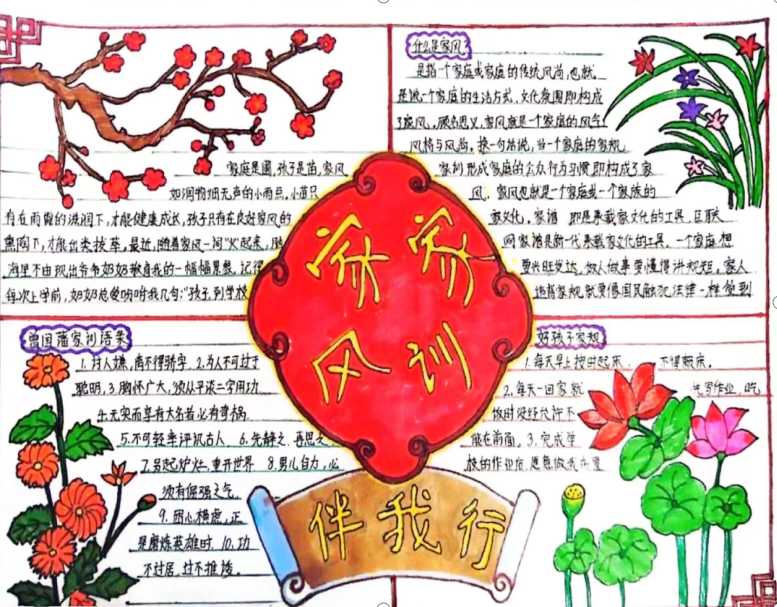 家庭是圃,孩子是苗,家风
如润物细无声的小雨点,小苗只
有在雨露的滋润下,才能健康成长,孩子只有在良好家风的
熏陶下,才能出类拔萃,最近,随着家风一词"火"起来,脑
海里不由现出爷爷奶奶教育我的一幅幅景象,记得
每次上学前,奶奶总爱吩咐我几句:"孩子,到学校
什么是家风
是指一个家庭或家庭的传统风尚,也就
是说一个家庭的生活方式,文化氛围即构成
了家风,顾名思义,家风就是一个家庭的风气
风格与风尚。换一句话说,当一个家庭的家规
家训形成家庭的会众行为习惯即构成了家
风。家风也就是一个家庭或一个家族的
家文化。家谱 即是承载家文化的工具,互联
网家谱是新一代承载家文化的工具。一个家庭想
要兴旺发达,做人做事要懂得讲规矩,家人
遵守家规就要像国民融况法律一样 做到
家家
风训
伴我行
曾国藩家训语录
1.对人嫌,富不得骄字,2.为人不可过于
聪明,3.胸怀广大,须从平淡二字用功
4.无实而享有大名者必有奇祸
5.不可轻率评讥古人 6.先静之,再思之
7.另起炉灶,重开世界 8.男儿自力,必
须有倔强之气
9.困心横虑,正
是磨炼英雄时,10.功
不过居,过不推诿
好孩子家规
1.每天早上按时起床, 不得赖床。
2.每天一回家就 先写作业,吃
饭时没经允许不
能在前面。3.完成学
校的作业后